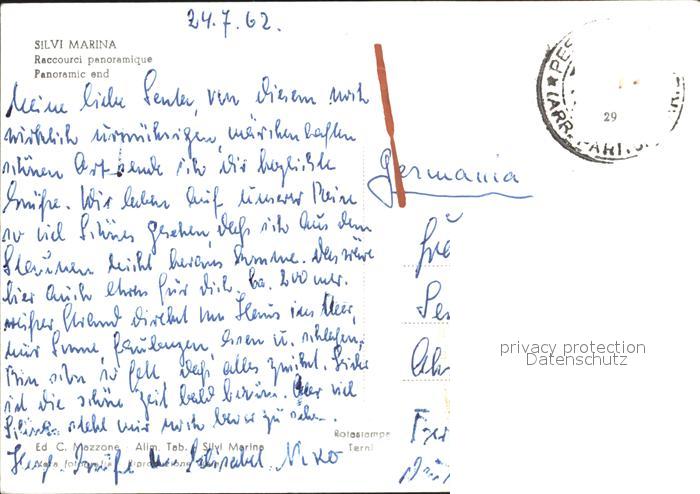 24.7.62.
SILVI MARINA
Raccourci panoramique
Panoramic end
Meine liebe Senta, von diesem noch
wirklich urwüchsigen, märchenhaften
schönen Ort sende ich dir herzliche
Grüße. Wir haben auf unserer Reise
so viel Schönes gesehen, daß ich aus dem
Staunen nicht heraus komme. Das wäre
hier auch etwas für dich. ca. 200 mtr.
weißer Strand direkt vom Haus ins Meer,
nur Sonne, faulenzen, essen u. schlafen.
Bin schon so fett, daß alles zwickt. Leider
ist die schöne Zeit bald herum. Aber viel
Schönes steht mir noch bevor zu sehen.
Herzl. Grüße Elisabet. Niko
Ed C. Mazzone - Alim. Tab. - Silvi Marina
Rotastampa
Terni
Germania
29
privacy protection
Datenschutz